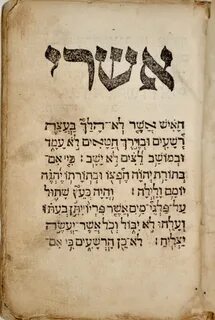 אשרי
הָאִישׁ אֲשֶׁר לֹא הָלַךְ בַּעֲצַת
רְשָׁעִים וּבְדֶרֶךְ חַטָּאִים לֹא עָמָד
וּבְמוֹשַׁב לֵצִים לֹא יָשָׁב: כִּי אִם
בְּתוֹרַת יְהוָה חֶפְצוֹ וּבְתוֹרָתוֹ יֶהְגֶּה
יוֹמָם וָלָיְלָה: וְהָיָה כְּעֵץ שָׁתוּל
עַל־פַּלְגֵי מָיִם אֲשֶׁר פִּרְיוֹ יִתֵּן בְּעִתּוֹ
וְעָלֵהוּ לֹא יִבּוֹל וְכֹל אֲשֶׁר יַעֲשֶׂה
יַצְלִיחַ: לֹא כֵן הָרְשָׁעִים כִּי אִם